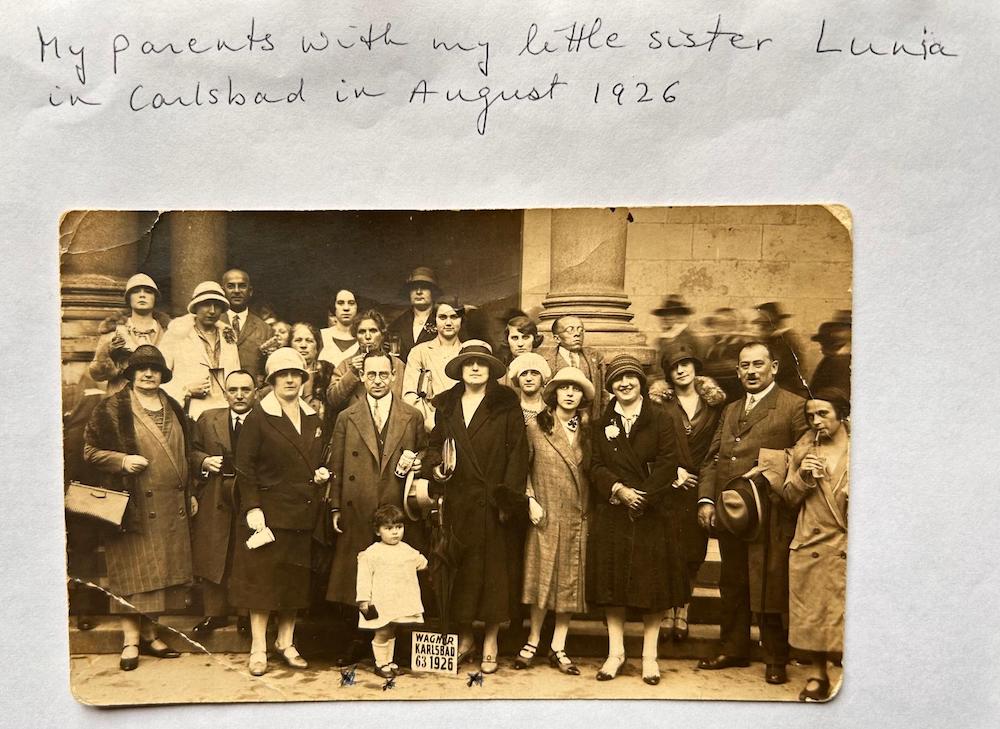 My parents with my little sister Lunia
in Carlsbad in August 1926
WAGNER
KARLSBAD
63 1926